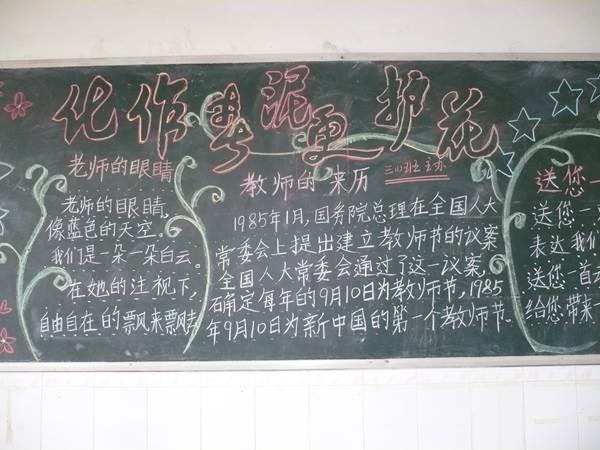 化作春泥更护花
老师的眼睛
老师的眼睛,
像蓝色的天空。
我们是一朵一朵白云。
在她的注视下,
自由自在的飘来飘去
教师的来历
三(1)班主办
1985年1月,国务院总理在全国人大
常委会上提出建立教师节的议案
全国人大常委会通过了这一议案,
确定每年的9月10日为教师节,1985
年9月10日为新中国的第一个教师节.
送您一
送您一
表达我们
送您一首
给您带来一